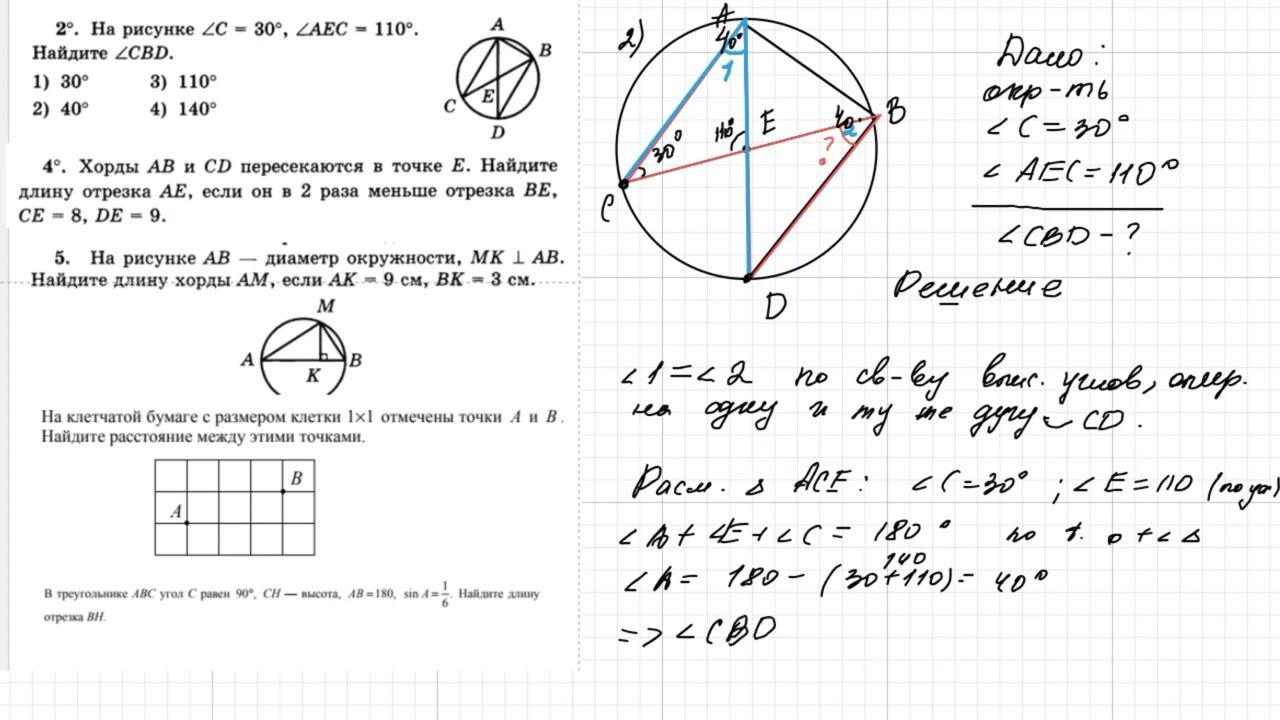 2°. На рисунке ∠C = 30°, ∠AEC = 110°.
Найдите ∠CBD.
1) 30° 3) 110°
2) 40° 4) 140°
A
B
C
E
D
4°. Хорды AB и CD пересекаются в точке E. Найдите
длину отрезка AE, если он в 2 раза меньше отрезка BE,
CE = 8, DE = 9.
5. На рисунке AB — диаметр окружности, MK ⊥ AB.
Найдите длину хорды AM, если AK = 9 см, BK = 3 см.
M
A
B
K
На клетчатой бумаге с размером клетки 1×1 отмечены точки A и B.
Найдите расстояние между этими точками.
B
A
В треугольнике ABC угол C равен 90°, CH — высота, AB = 180, sin A = 1/6. Найдите длину
отрезка BH.
2)
A
40°
1
B
40°
2
?
110°
E
30°
C
D
Дано:
окр-ть
∠C = 30°
∠AEC = 110°
∠CBD - ?
Решение
∠1 = ∠2 по св-ву впис. углов, опир.
на одну и ту же дугу ◡ CD.
Расм. △ ACE: ∠C = 30° ; ∠E = 110 (по ус)
∠A + ∠E + ∠C = 180° по т. о + ∠ △
140
∠A = 180 - (30 + 110) = 40°
=> ∠CBD